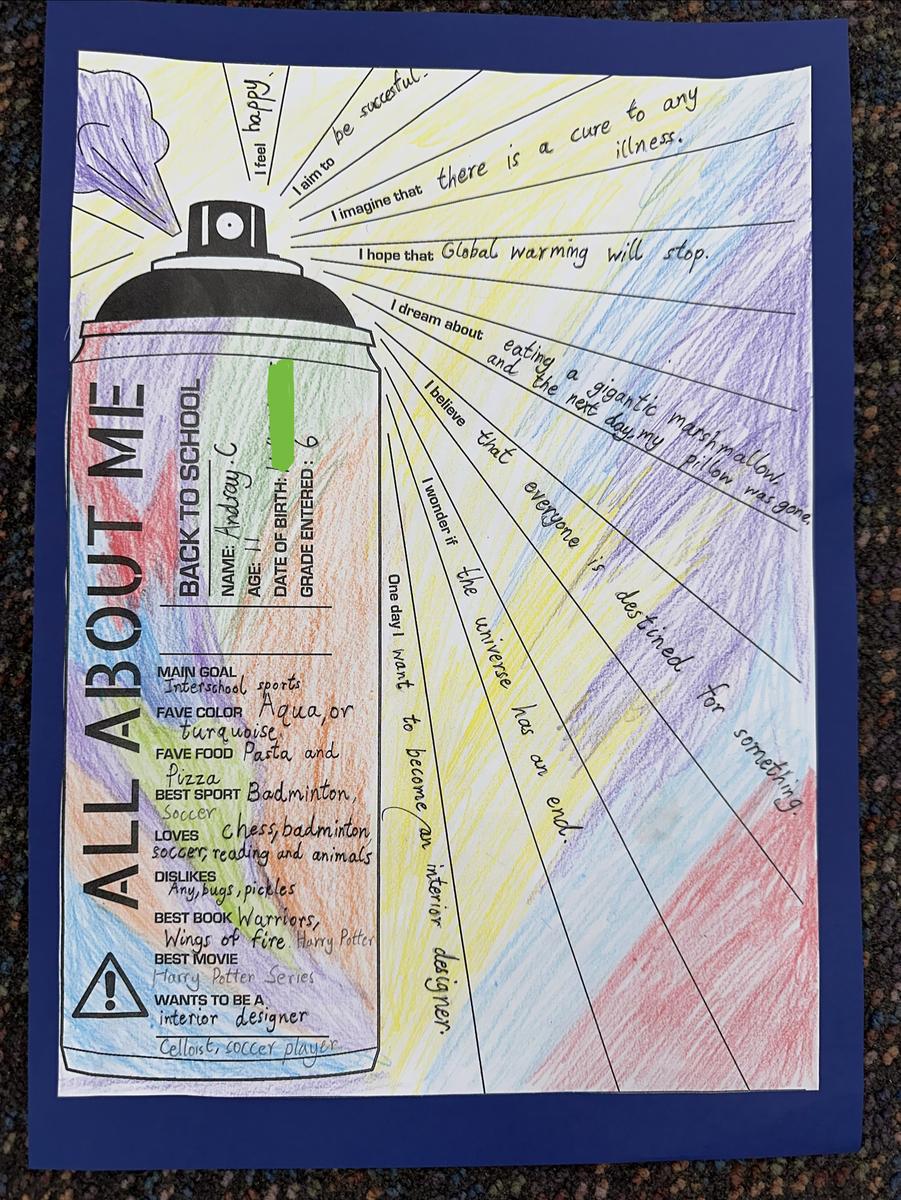 I feel happy.
I aim to be succesful.
I imagine that there is a cure to any
illness.
I hope that Global warming will stop.
I dream about eating a gigantic marshmallow,
and the next day, my pillow was gone.
I believe that everyone is destined for something.
I wonder if the universe has an end.
One day I want to become an interior designer.
ALL ABOUT ME
BACK TO SCHOOL
NAME: Andray C
AGE: 11
DATE OF BIRTH:
GRADE ENTERED: 6
MAIN GOAL
Interschool sports
FAVE COLOR Aqua, or
turquoise
FAVE FOOD Pasta and
Pizza
BEST SPORT Badminton,
soccer
LOVES chess, badminton
soccer, reading and animals
DISLIKES
Any, bugs, pickles
BEST BOOK Warriors,
Wings of fire Harry Potter
BEST MOVIE
Harry Potter Series
WANTS TO BE A
interior designer
Celloist, soccer player